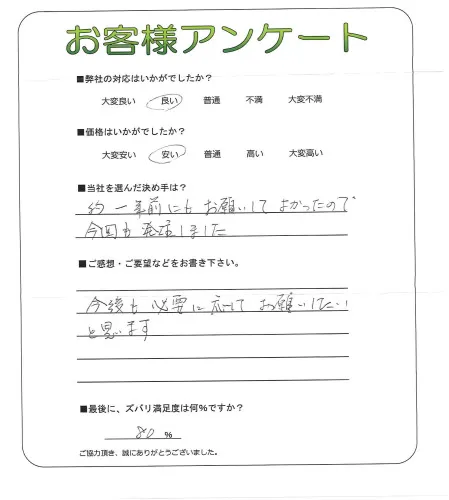 お客様アンケート
■弊社の対応はいかがでしたか？
大変良い 良い 普通 不満 大変不満
■価格はいかがでしたか？
大変安い 安い 普通 高い 大変高い
■当社を選んだ決め手は？
約一年前にもお願いしてよかったので
今回も発注しました
■ご感想・ご要望などをお書き下さい。
今後も必要に応じてお願いしたい
と思います
■最後に、ズバリ満足度は何％ですか？
80 ％
ご協力頂き、誠にありがとうございました。